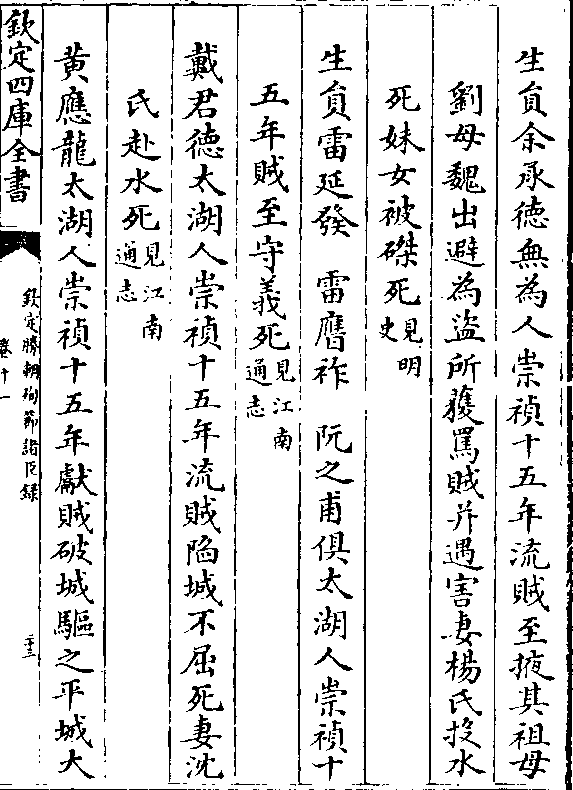 生員余承德無為人崇禎十五年流賊至掖其祖母
劉母魏出避為盜所獲罵賊并遇害妻楊氏投水
死妹女被磔死見明
史
生員雷延發　雷膺祚　阮之甫俱太湖人崇禎十
五年賊至守義死見江南
通志
戴君德太湖人崇禎十五年流賊陷城不屈死妻沈
氏赴水死見江南
通志
黄應龍太湖人崇禎十五年獻賊破城驅之平城大
欽定四庫全書
欽定勝朝殉節諸臣録
卷十一
二十三